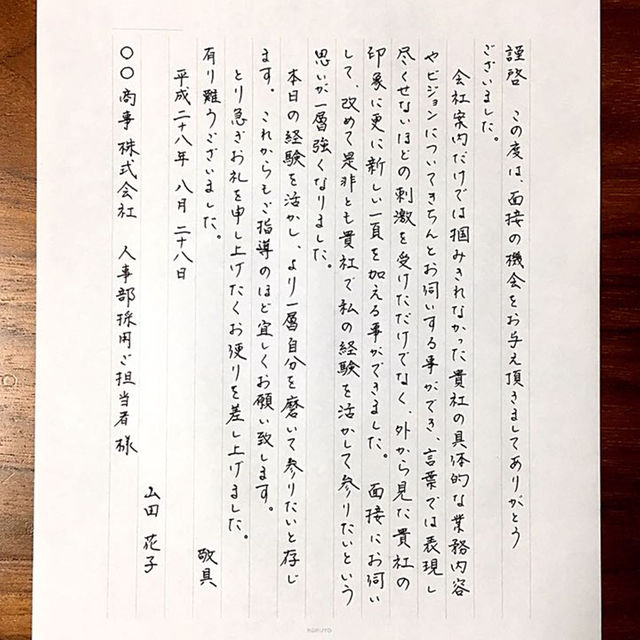 謹啓　この度は、面接の機会をお与え頂きましてありがとう
ございました。
会社案内だけでは掴みきれなかった貴社の具体的な業務内容
やビジョンについてきちんとお伺いする事ができ、言葉では表現し
尽くせないほどの刺激を受けただけでなく、外から見た貴社の
印象に更に新しい一頁を加える事ができました。面接にお伺い
して、改めて是非とも貴社で私の経験を活かして参りたいという
思いが一層強くなりました。
本日の経験を活かし、より一層自分を磨いて参りたいと存じ
ます。これからもご指導のほど宜しくお願い致します。
とり急ぎお礼を申し上げたくお便りを差し上げました。
有り難うございました。
敬具
平成二十八年 八月 二十八日
山田 花子
〇〇商事 株式会社　人事部採用ご担当者 様
KOKUYO